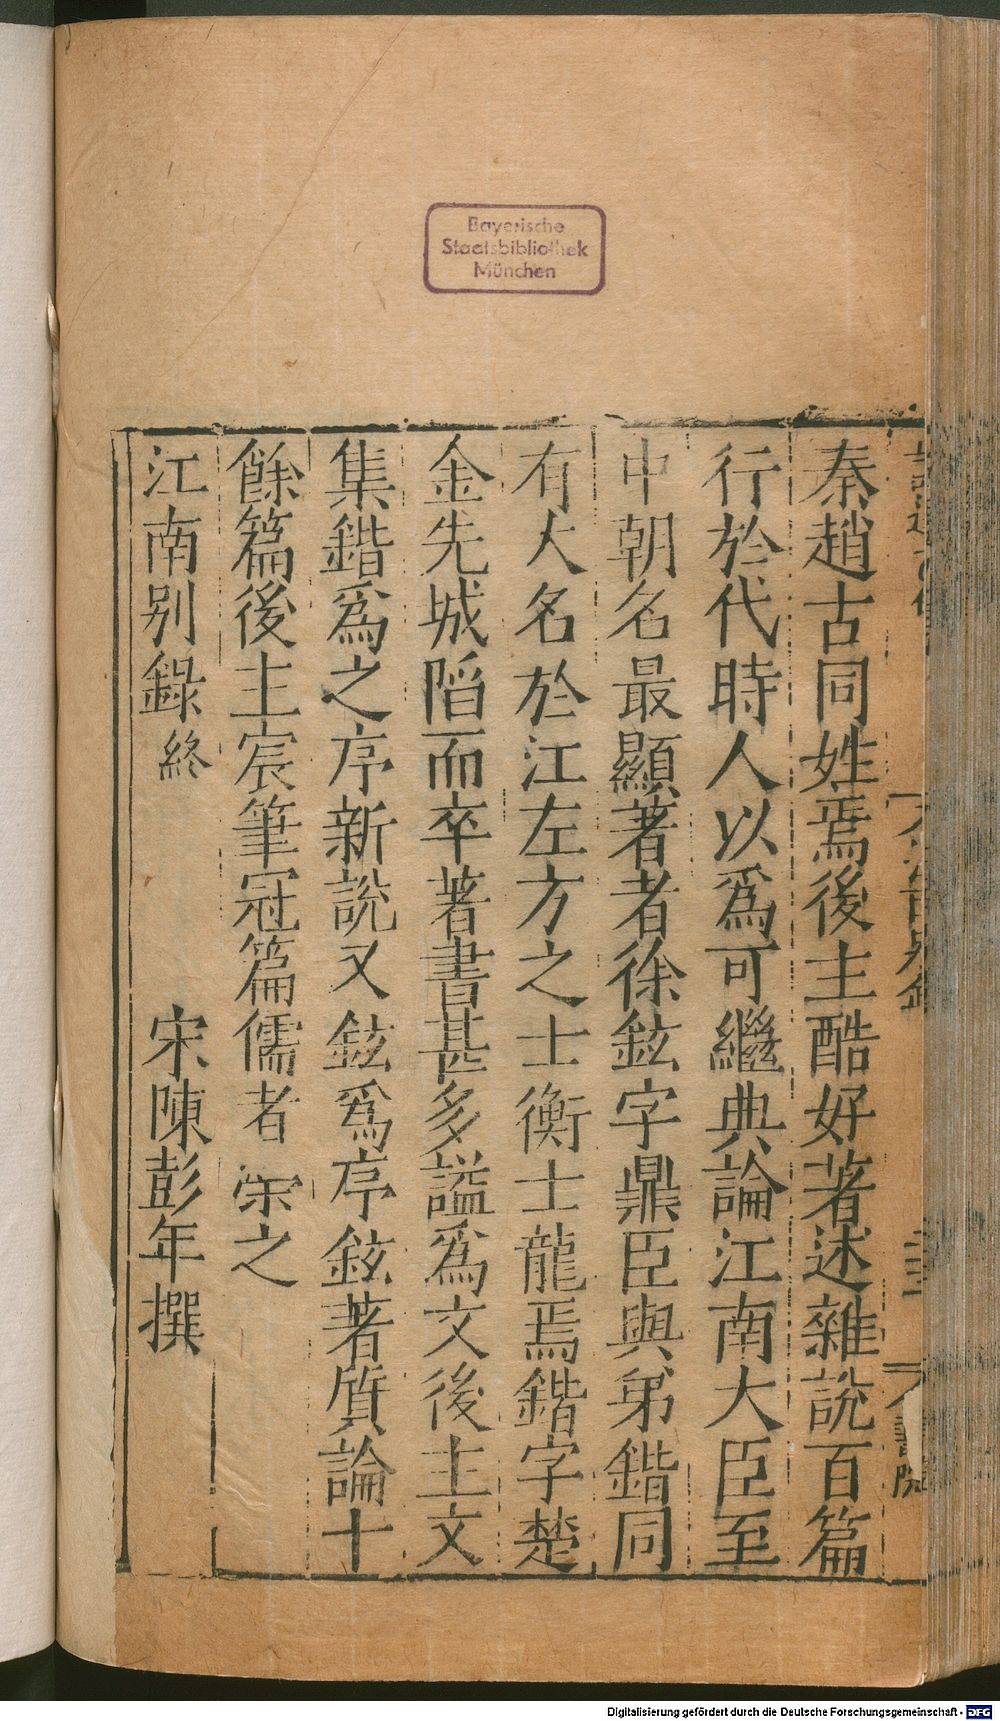 秦趙古同姓焉後主酷好著述雜說百篇
行於代時人以爲可繼典論江南大臣至
中朝名最顯著者徐鉉字鼎臣與弟鍇同
有大名於江左方之士衡士龍焉鍇字楚
金先城陷而卒著書甚多謚爲文後主文
集鍇爲之序新說又鉉爲序鉉著質論十
餘篇後主宸筆冠篇儒者榮之
江南别錄終 宋陳彭年撰
Bayerische
Staatsbibliothek
München
Digitalisierung gefördert durch die Deutsche Forschungsgemeinschaft - DFG